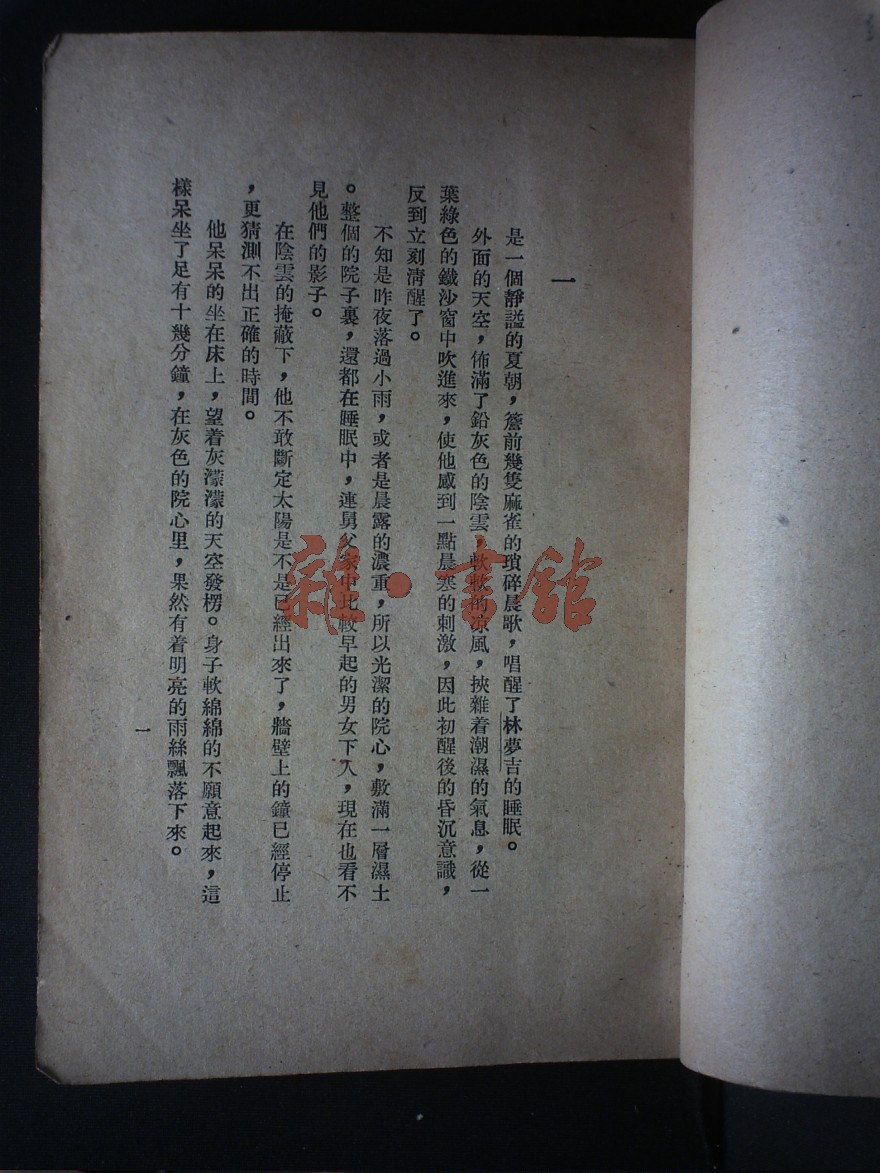 一
是一個靜謐的夏朝，簷前幾隻麻雀的瑣碎晨歌，唱醒了林夢吉的睡眠。
外面的天空，佈滿了鉛灰色的陰雲，軟軟的凉風，挾雜着潮濕的氣息，從一
葉綠色的鐵沙窗中吹進來，使他感到一點晨寒的刺激，因此初醒後的昏沉意識，
反到立刻淸醒了。
不知是昨夜落過小雨，或者是晨露的濃重，所以光潔的院心，敷滿一層濕土
。整個的院子裏，還都在睡眠中，連舅父家中比較早起的男女下人，現在也看不
見他們的影子。
在陰雲的掩蔽下，他不敢斷定太陽是不是已經出來了，牆壁上的鐘已經停止
，更猜測不出正確的時間。
他呆呆的坐在床上，望着灰濛濛的天空發楞。身子軟綿綿的不願意起來，這
樣呆坐了足有十幾分鐘，在灰色的院心里，果然有着明亮的雨絲飄落下來。
一
雜·書館